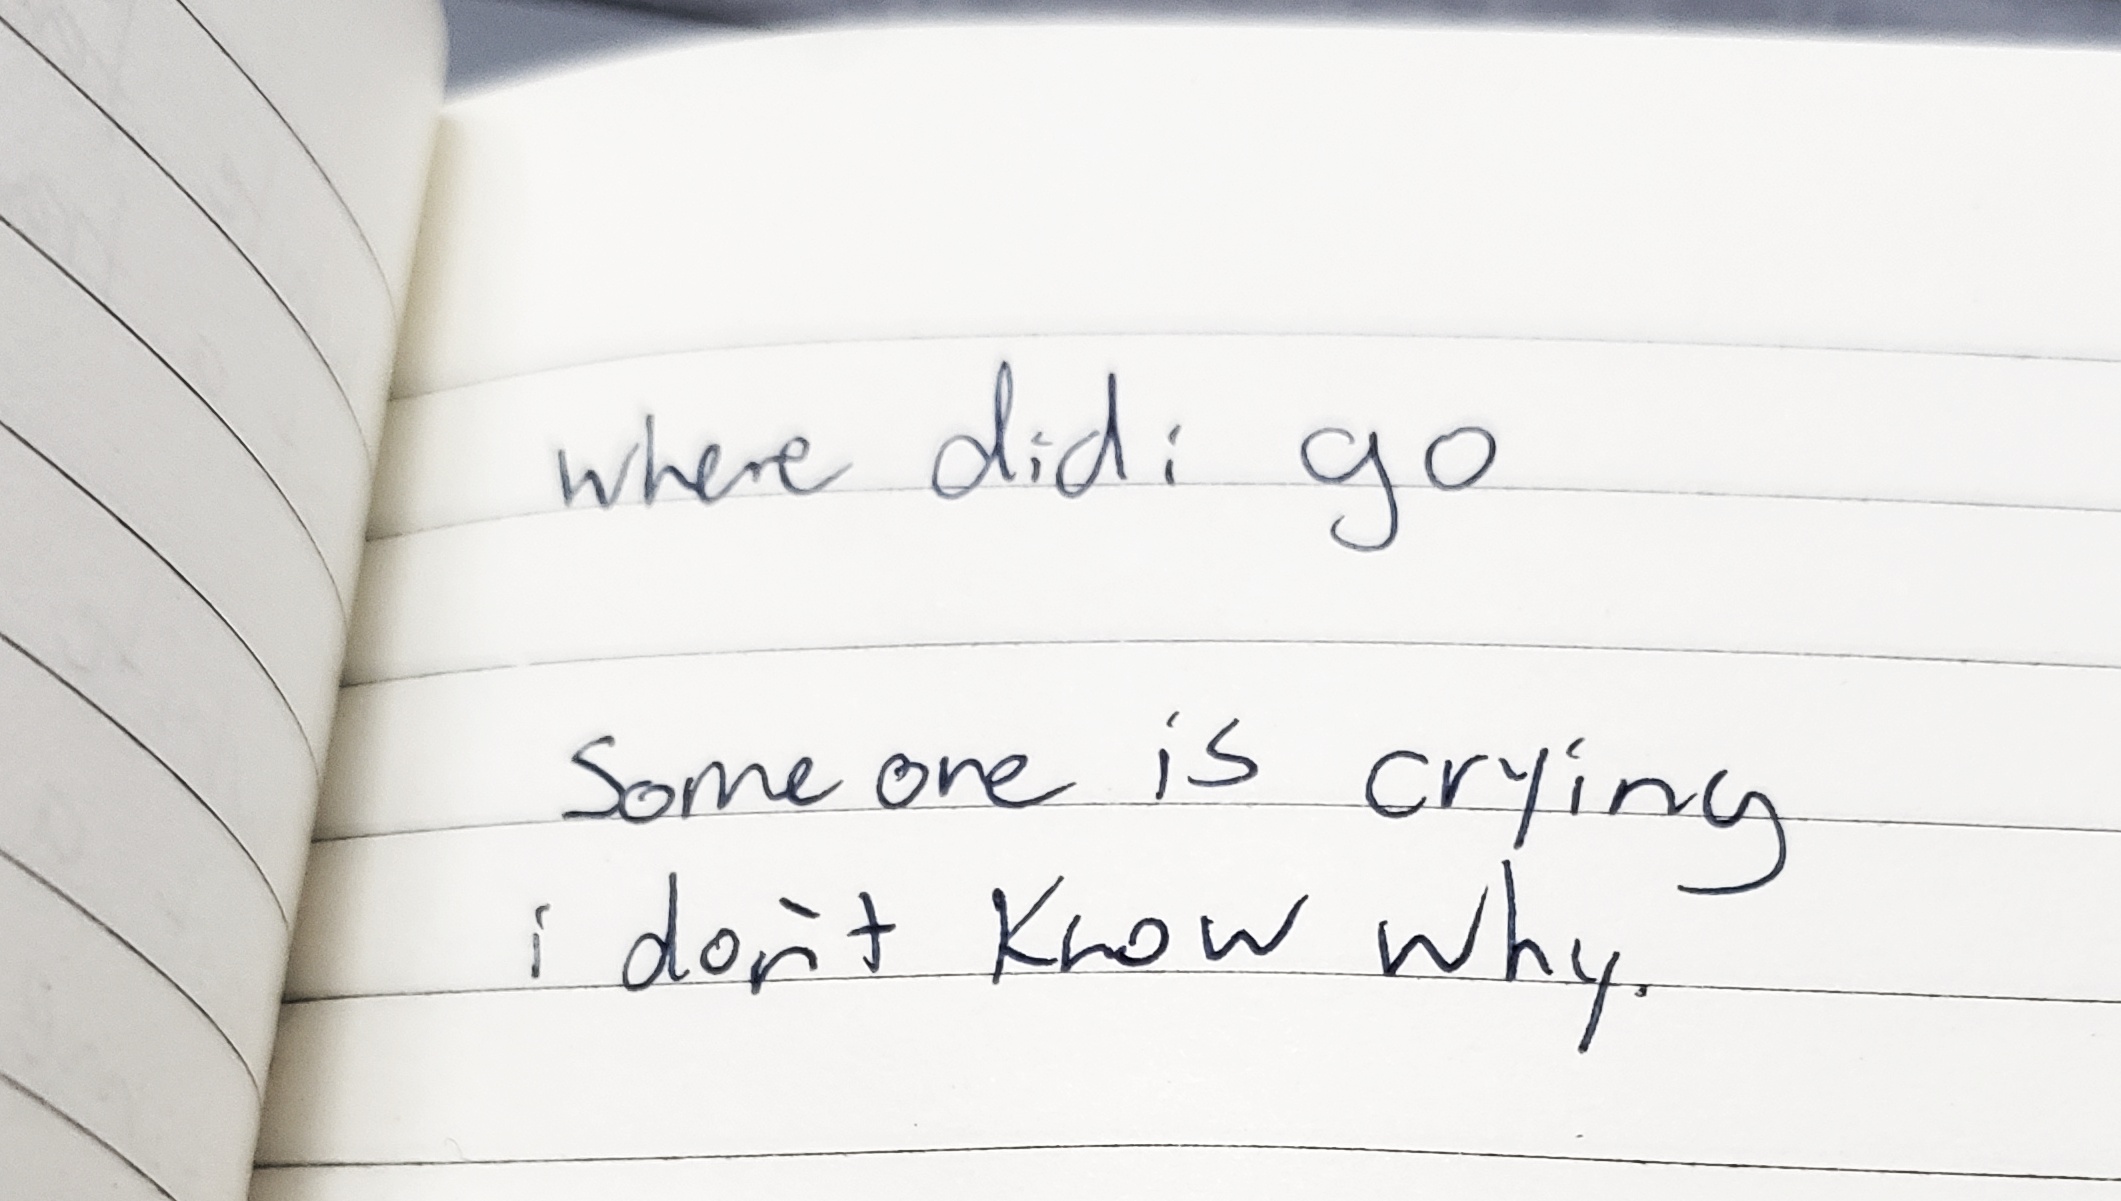 where did i go
Some one is crying
i don't know why.